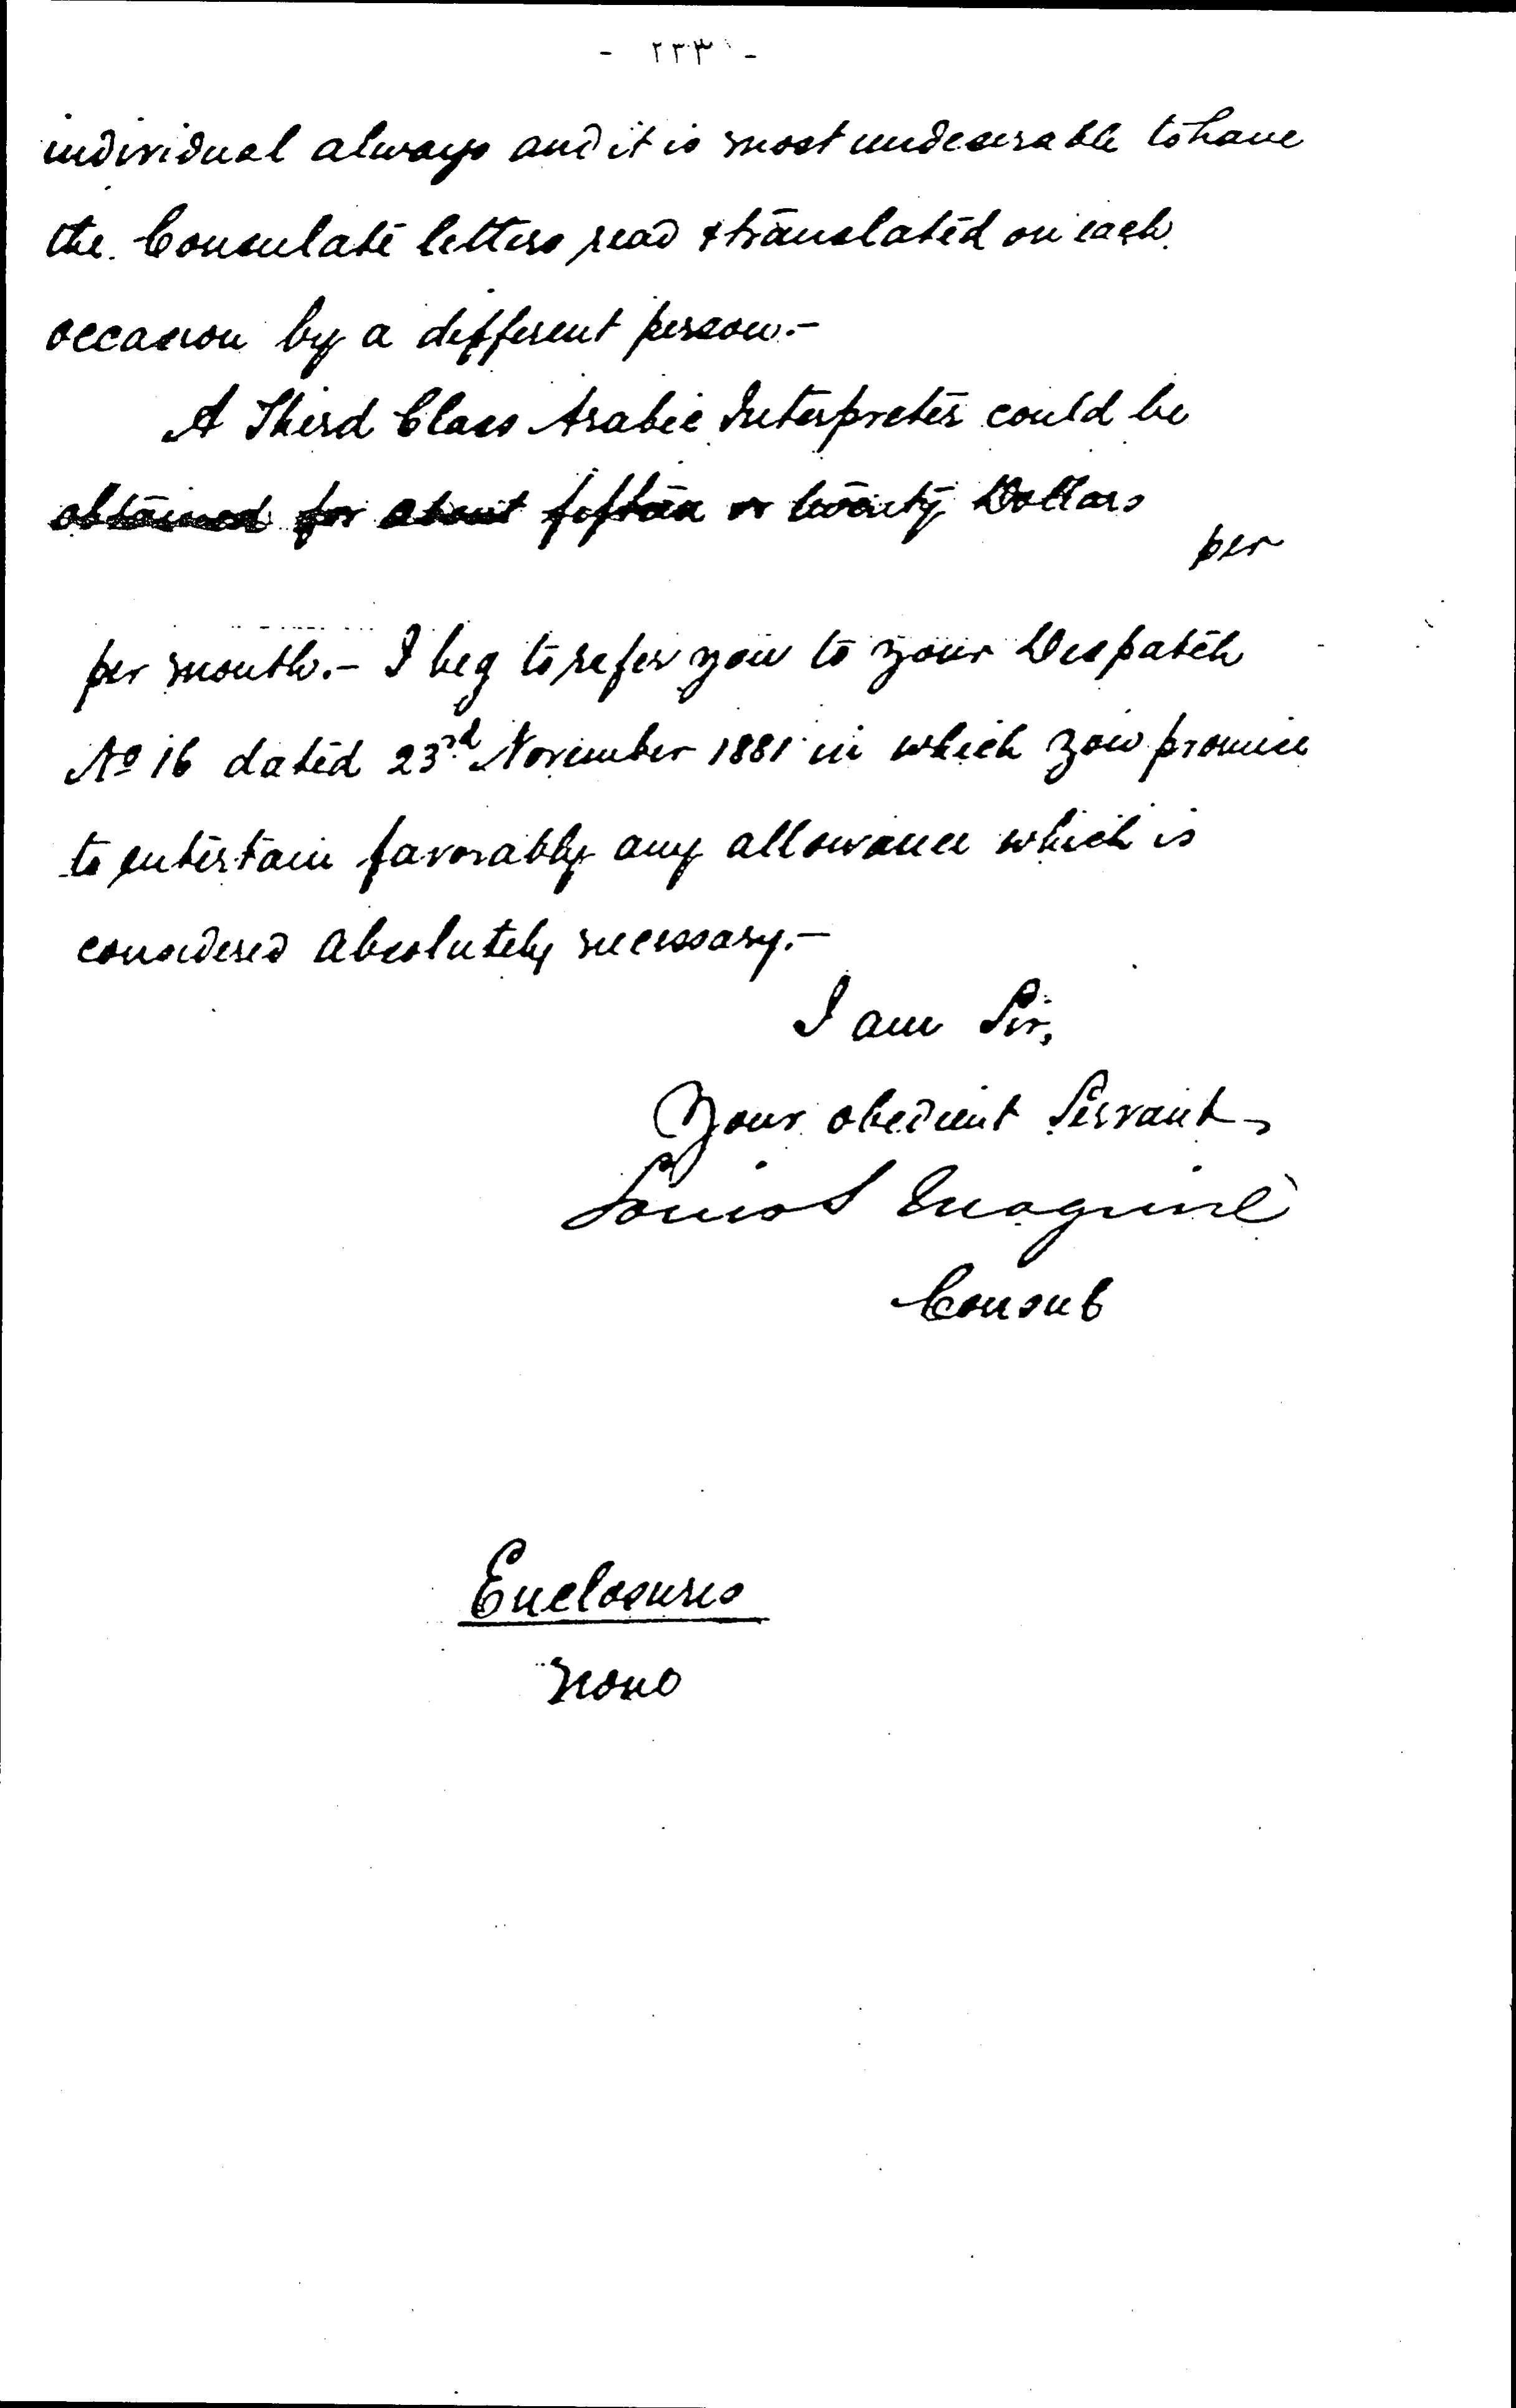 - ٢٢٣ -
individual always and it is most undesirable to have
the Consulate letters read & translated on each
occasion by a different person.-
A Third Class Arabic Interpreter could be
obtained for about fifteen or twenty Dollars
per
per month.- I beg to refer you to your Despatch
No 16 dated 23rd November 1881 in which you promise
to entertain favorably any allowance which is
considered absolutely necessary.-
I am Sir,
Your obedient Servant,
Louis Maguire
Consul
Enclosures
None